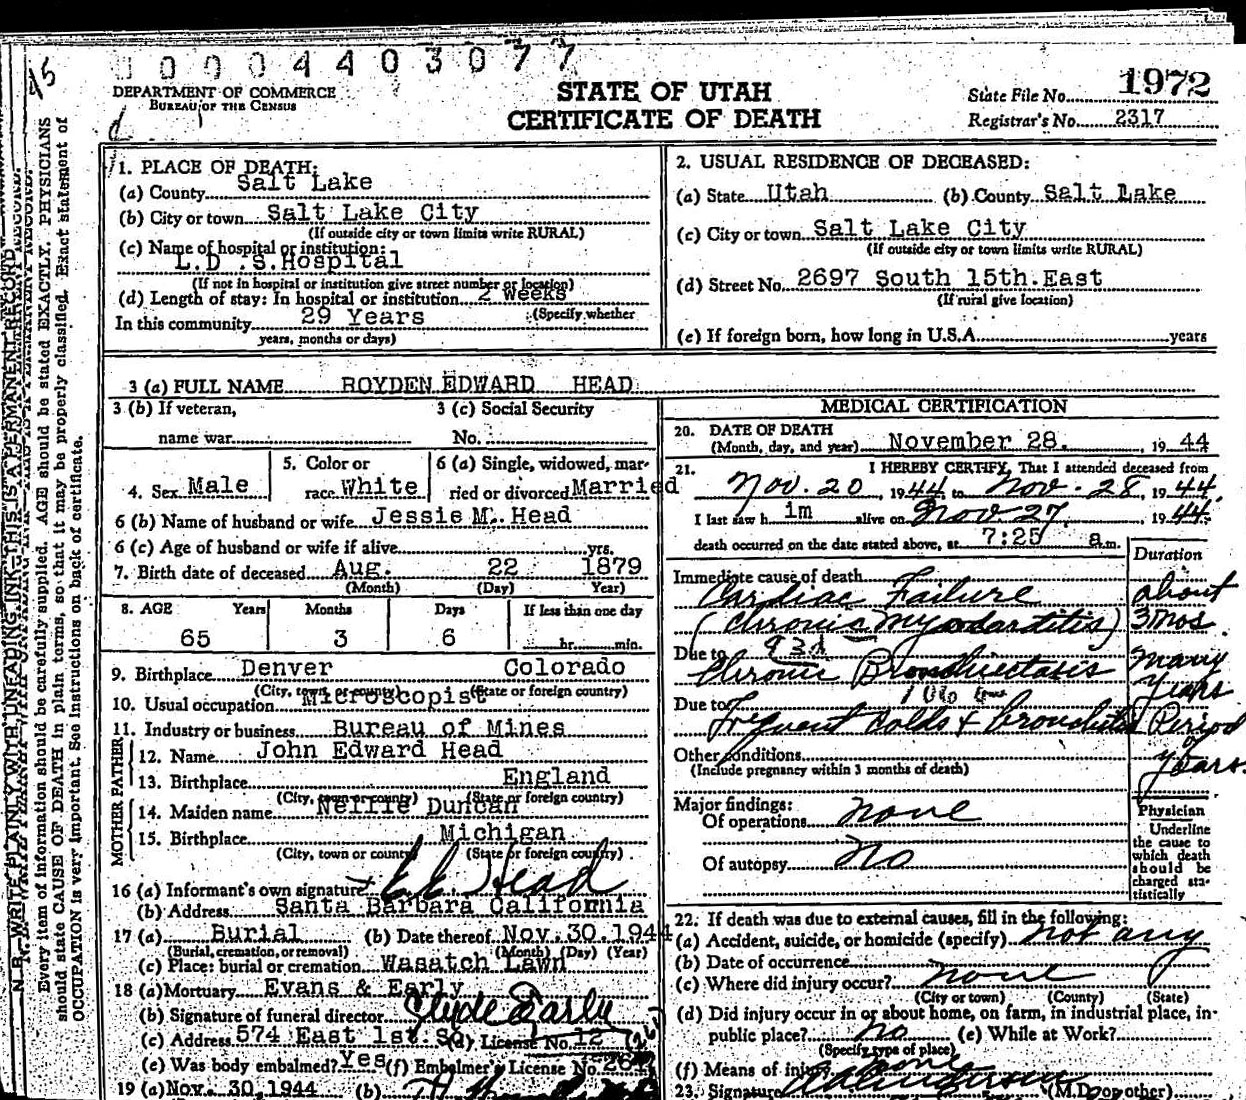 0 0 0 4 4 0 3 0 7 7
DEPARTMENT OF COMMERCE
BUREAU OF THE CENSUS
STATE OF UTAH
CERTIFICATE OF DEATH
State File No. 1972
Registrar's No. 2317
N. B. WRITE PLAINLY WITH UNFADING INK—THIS IS A PERMANENT RECORD.
Every item of information should be carefully supplied. AGE should be stated EXACTLY. PHYSICIANS
should state CAUSE OF DEATH in plain terms, so that it may be properly classified. Exact statement of
OCCUPATION is very important. See instructions on back of certificate.
1. PLACE OF DEATH:
(a) County Salt Lake
(b) City or town Salt Lake City
(If outside city or town limits write RURAL)
(c) Name of hospital or institution:
L.D .S.Hospital
(If not in hospital or institution give street number or location)
(d) Length of stay: In hospital or institution 2 weeks
(Specify whether
In this community 29 Years
years, months or days)
2. USUAL RESIDENCE OF DECEASED:
(a) State Utah (b) County Salt Lake
(c) City or town Salt Lake City
(If outside city or town limits write RURAL)
(d) Street No. 2697 South 15th East
(If rural give location)
(e) If foreign born, how long in U.S.A. years
3 (a) FULL NAME ROYDEN EDWARD HEAD
3 (b) If veteran,
name war
3 (c) Social Security
No.
4. Sex Male
5. Color or
race White
6 (a) Single, widowed, mar-
ried or divorced Married
6 (b) Name of husband or wife Jessie M. Head
6 (c) Age of husband or wife if alive yrs.
7. Birth date of deceased Aug. 22 1879
(Month) (Day) Year)
8. AGE Years Months Days If less than one day
65 3 6 hr. min.
9. Birthplace Denver Colorado
(City, town or county) (State or foreign country)
10. Usual occupation Microscopist
11. Industry or business Bureau of Mines
FATHER
12. Name John Edward Head
13. Birthplace England
(City, town or county) (State or foreign country)
MOTHER
14. Maiden name Nellie Duncan
15. Birthplace Michigan
(City, town or county) (State or foreign country)
16 (a) Informant's own signature Head
(b) Address Santa Barbara California
17 (a) Burial (b) Date thereof Nov. 30, 1944
(Burial, cremation, or removal) (Month) (Day) (Year)
(c) Place: burial or cremation Wasatch Lawn
18 (a) Mortuary Evans & Early
(b) Signature of funeral director Clyde Early
(c) Address 574 East 1st. So (d) License No. 12
(e) Was body embalmed? Yes (f) Embalmer's License No.
19 (a) Nov. 30, 1944 (b)
MEDICAL CERTIFICATION
20. DATE OF DEATH
(Month, day, and year) November 28. , 19 44
21. I HEREBY CERTIFY, That I attended deceased from
Nov. 20 , 1944 to Nov. 28 , 1944
I last saw h im alive on Nov. 27 , 1944
death occurred on the date stated above, at 7:25 a.m.
Duration
Immediate cause of death
Cardiac Failure about
(Chronic Myocarditis) 3 mos.
Due to 93d
Chronic Bronchiectasis many years
Due to
Frequent Colds & bronchitis Period of years.
Other conditions
(Include pregnancy within 3 months of death)
Major findings:
Of operations none
Of autopsy no
Physician
Underline
the cause to
which death
should be
charged sta-
tistically
22. If death was due to external causes, fill in the following:
(a) Accident, suicide, or homicide (specify) not any
(b) Date of occurrence
(c) Where did injury occur? none
(City or town) (County) (State)
(d) Did injury occur in or about home, on farm, in industrial place, in
public place? no (e) While at Work?
(Specify type of place)
(f) Means of injury none
23. Signature (M.D. or other)